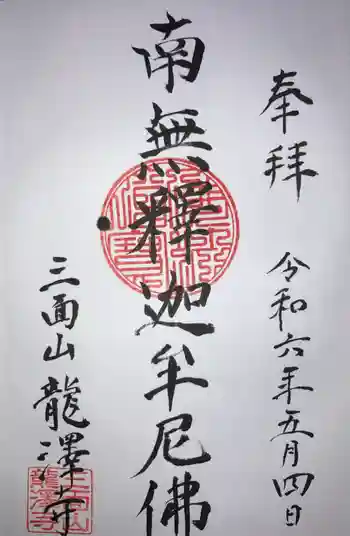 奉拝 令和六年五月四日
南無釋迦牟尼佛
三面山龍澤寺